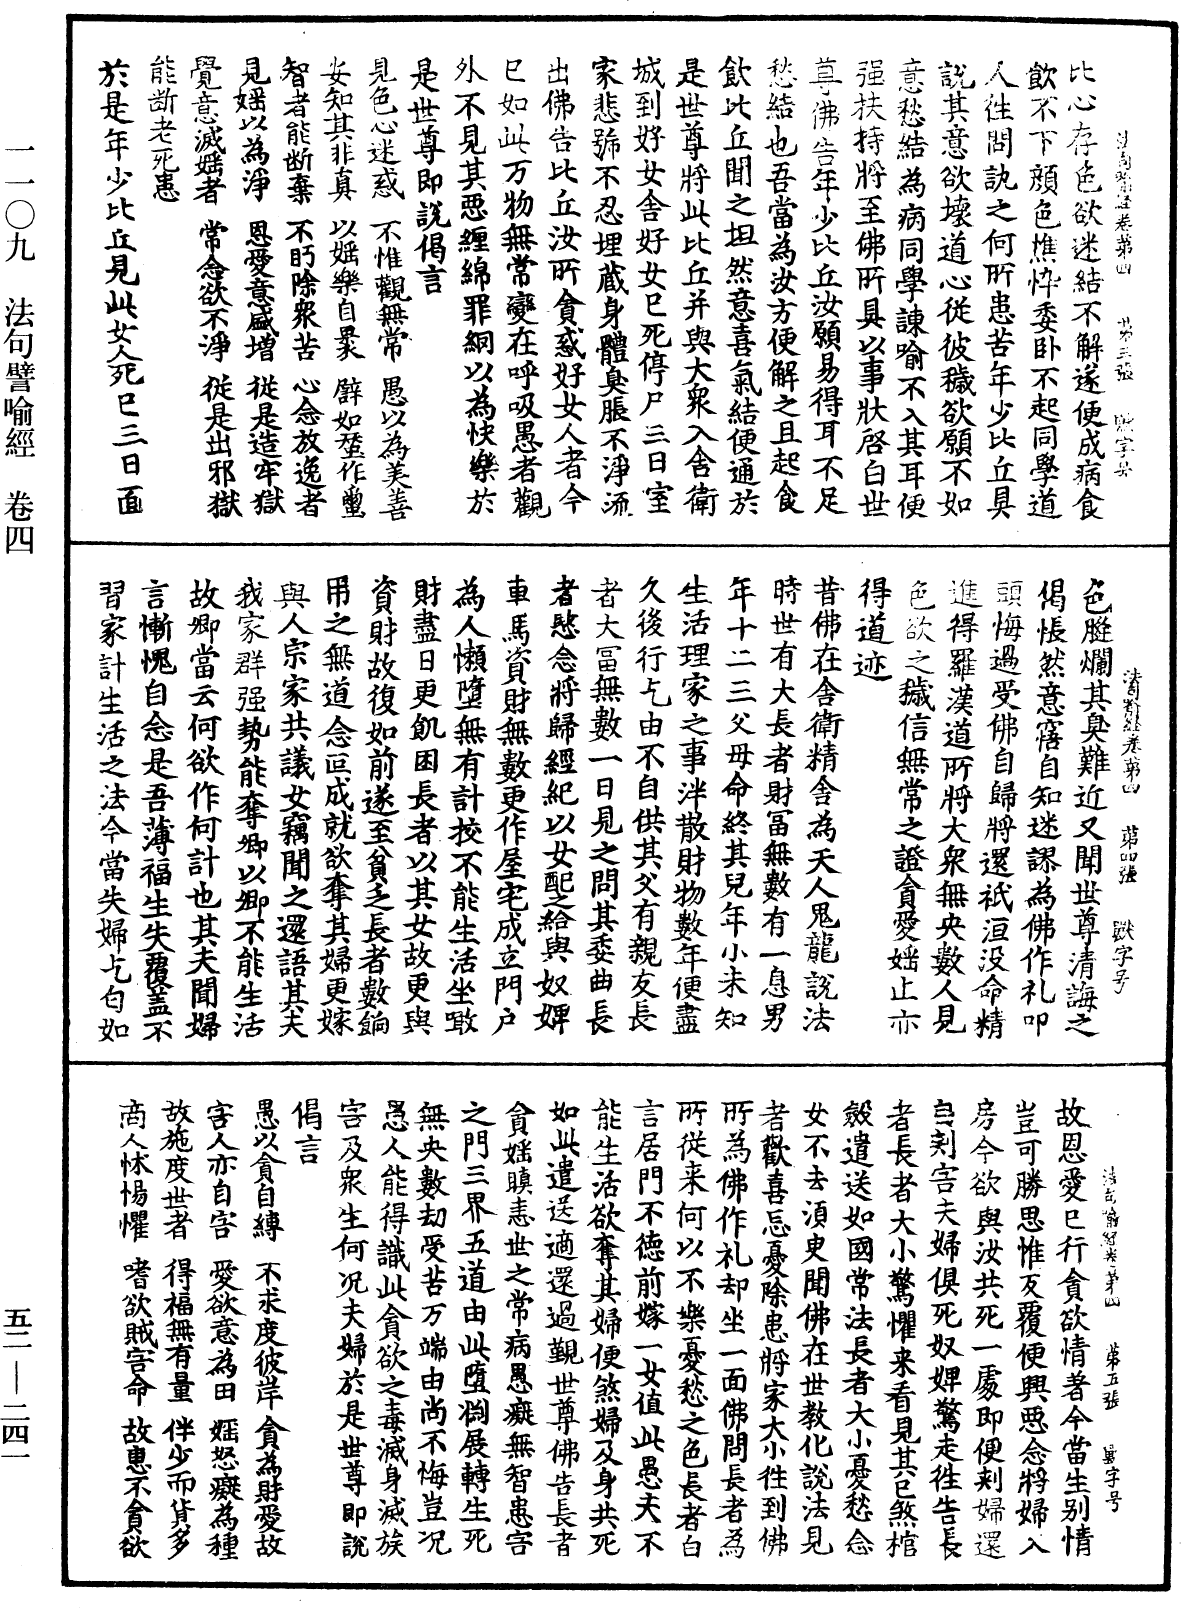 一一〇九　法句譬喻經　卷四
五二—二四一
法句喻經卷第四　第三張　獸字号
比心存色欲迷結不解遂便成病食
飲不下顔色憔悴委卧不起同學道
人往問訊之何所患苦年少比丘具
說其意欲壞道心從彼穢欲願不如
意愁結為病同學諫喻不入其耳便
强扶持將至佛所具以事狀啓白世
尊佛告年少比丘汝願易得耳不足
愁結也吾當為汝方便解之且起食
飲比丘聞之坦然意喜氣結便通於
是世尊將此比丘并與大衆入舍衛
城到好女舍好女已死停尸三日室
家悲號不忍埋蔵身體臭脹不淨流
出佛告比丘汝所貪惑好女人者今
已如此万物無常變在呼吸愚者觀
外不見其惡纏綿罪網以為快樂於
是世尊即說偈言
見色心迷惑　不惟觀無常　愚以為美善
安知其非真　以婬樂自裹　譬如蠶作蠒
智者能断棄　不眄除衆苦　心念放逸者
見婬以為淨　恩愛意盛增　從是造牢獄
覺意滅婬者　常念欲不淨　從是出邪獄
能断老死患
於是年少比丘見此女人死已三日面
法句喻經卷第四　第四張　獸字号
色膖爛其臭難近又聞世尊清誨之
偈悵然意寤自知迷謬為佛作礼叩
頭悔過受佛自歸將還祇洹没命精
進得羅漢道所將大衆無央數人見
色欲之穢信無常之證貪愛婬止亦
得道迹
昔佛在舍衛精舍為天人鬼龍說法
時世有大長者財冨無數有一息男
年十二三父母命終其兒年小未知
生活理家之事泮散財物數年便盡
久後行乞由不自供其父有親友長
者大冨無數一日見之問其委曲長
者愍念將歸經紀以女配之給與奴婢
車馬資財無數更作屋宅成立門户
為人懶墮無有計挍不能生活坐散
財盡日更飢困長者以其女故更與
資財故復如前遂至貧乏長者數餉
用之無道念叵成就欲奪其婦更嫁
與人宗家共議女竊聞之還語其夫
我家群强勢能奪卿以卿不能生活
故卿當云何欲作何計也其夫聞婦
言慚愧自念是吾薄福生失覆盖不
習家計生活之法今當失婦乞匃如
法句喻經卷第四　第五張　獸字号
故恩愛已行貪欲情著今當生別情
豈可勝思惟反覆便興惡念將婦入
房今欲與汝共死一處即便刺婦還
自刺害夫婦俱死奴婢驚走往告長
者長者大小驚懼来看見其已煞棺
斂遣送如國常法長者大小憂愁念
女不去須臾聞佛在世教化說法見
者歡喜忘憂除患將家大小往到佛
所為佛作礼却坐一面佛問長者為
所從来何以不樂憂愁之色長者白
言居門不德前嫁一女值此愚夫不
能生活欲奪其婦便煞婦及身共死
如此遣送適還過覲世尊佛告長者
貪婬瞋恚世之常病愚癡無智患害
之門三界五道由此墮淵展轉生死
無央數劫受苦万端由尚不悔豈况
愚人能得識此貪欲之毒滅身滅族
害及衆生何况夫婦於是世尊即說
偈言
愚以貪自縛　不求度彼岸　貪為財愛故
害人亦自害　愛欲意為田　婬怒癡為種
故施度世者　得福無有量　伴少而貨多
商人怵惕懼　嗜欲賊害命　故惠不貪欲